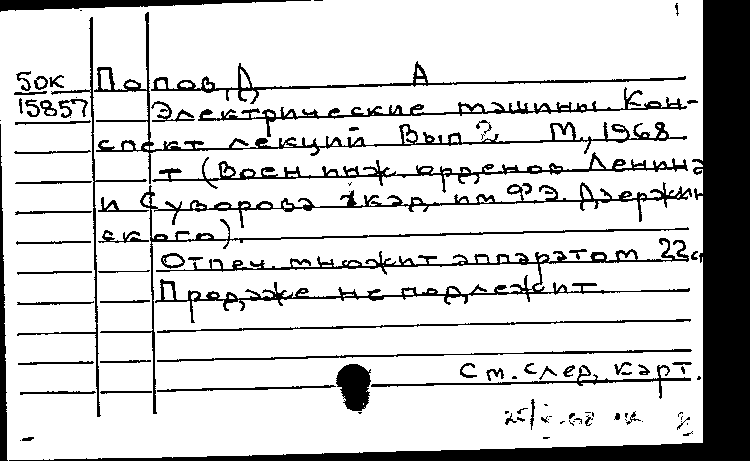 1
50к Попов, Д А
15857 Электрические машины. Кон-
спект лекций Вып 2. М., 1968.
т (Воен. инж. орденов Ленина
и Суворова акад. им Ф.Э. Дзержин
ского).
Отпеч. множит аппаратом 22 см
Продаже не подлежит.
См. след. карт.